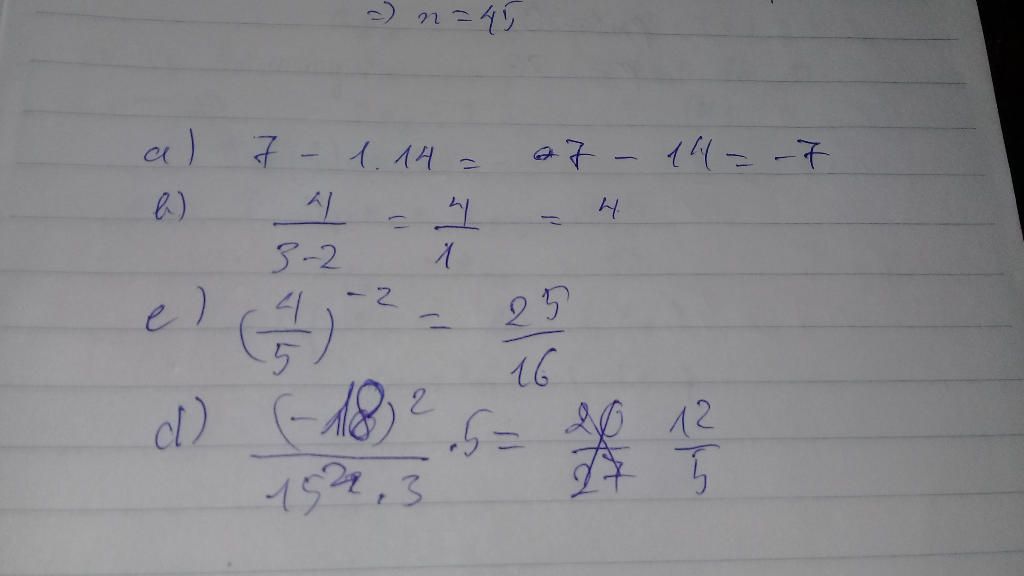 =) n = 45
a) 7 - 1.14 = -7 - 14 = -7
b) 4/(3-2) = 4/1 = 4
c) (4/5)^-2 = 25/16
d) (-18)^2/(15^2 . 3) . 5 = 20/27 12/5